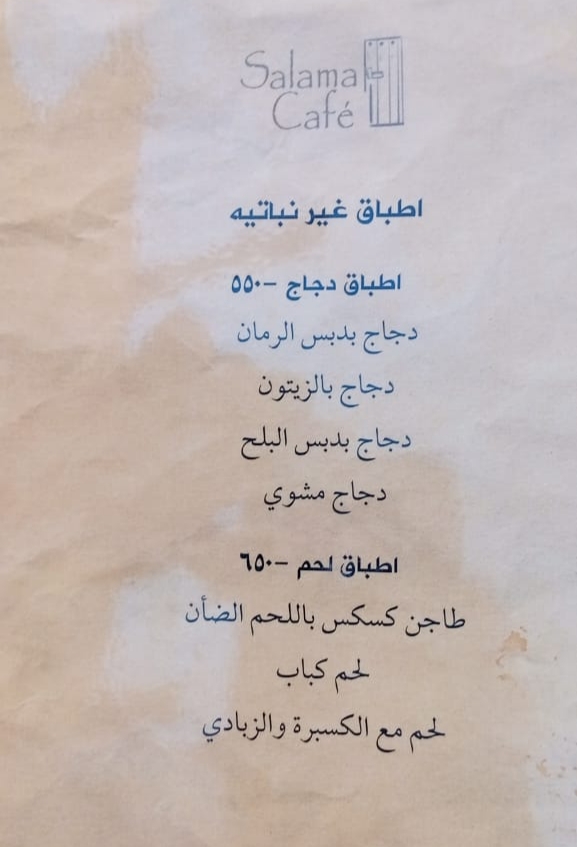 Salama
Café
اطباق غير نباتيه
اطباق دجاج -٥٥٠
دجاج بدبس الرمان
دجاج بالزيتون
دجاج بدبس البلح
دجاج مشوي
اطباق لحم -٦٥٠
طاجن كسكس باللحم الضأن
لحم كباب
لحم مع الكسبرة والزبادي